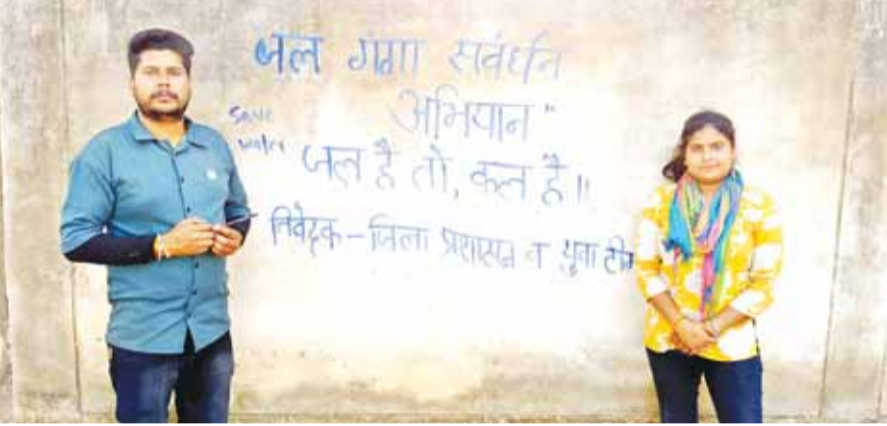 जल गंगा सवंर्धन
अभियान"
save
water
जल है तो, कल है॥
निवेदक - जिला प्रशासन व युवा टीम